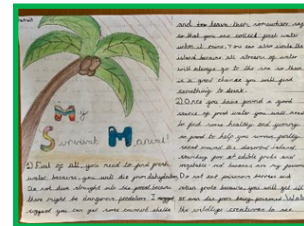 My
Survival Manual!
1) First of all, you need to find fresh
water because, you will die from dehydration
Do not dive straight into the pool because
there might be dangerous predators. I
suggest you can get some coconut shells
and leave them somewhere
so that you can collect fresh water
when it rains. You can also circle the
island because all streams of water
will always go to the sea so there
is a good chance you will find
something to drink.
2) Once you have found a good
source of fresh water you will need
to find some healthy and
food to help you survive,
around the deserted island,
searching for edible fruits and
vegetables
Do not eat poisonous berries and
because you will get ill
or even die from being poisoned.
the wildlife creatures to see